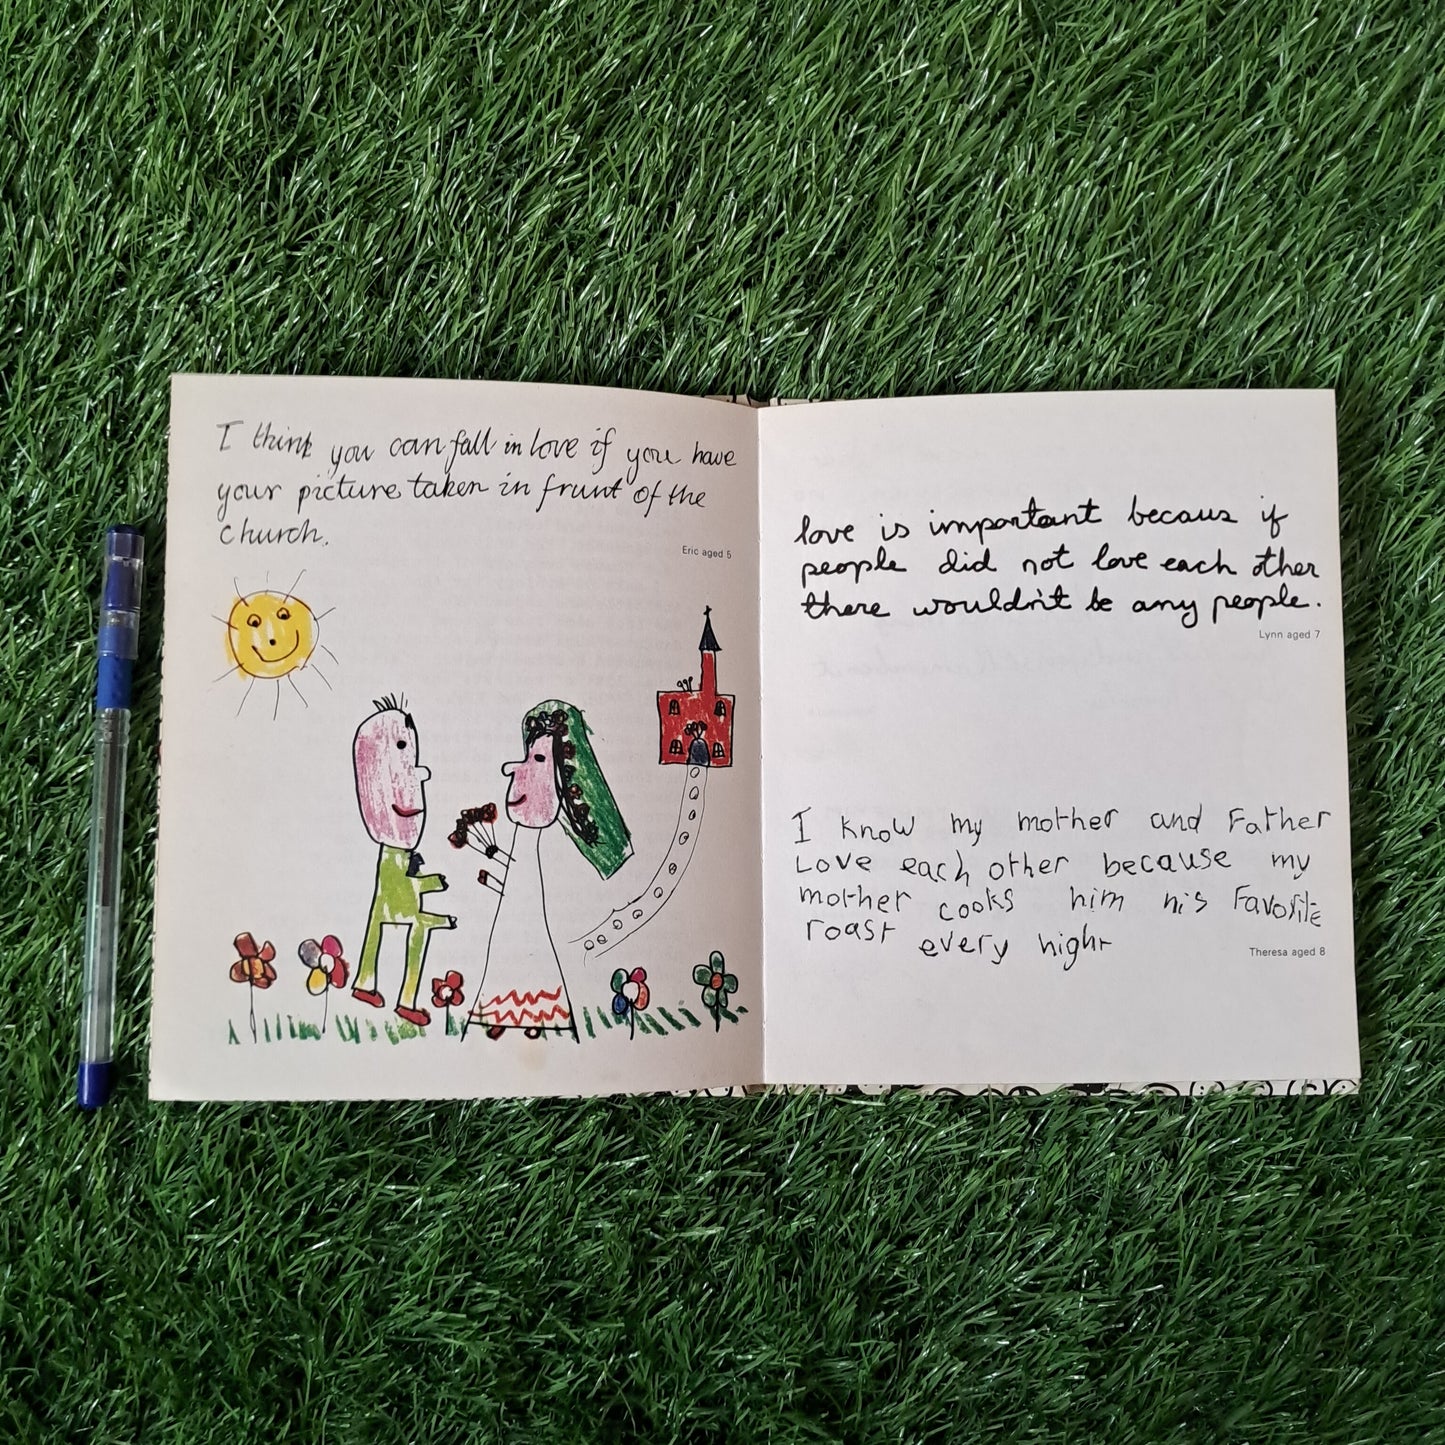 I think you can fall in love if you have
your picture taken in frunt of the
church.
Eric aged 5
love is important becaus if
people did not love each other
there wouldn't be any people.
Lynn aged 7
I know my mother and Father
Love each other because my
mother cooks him his Favorite
roast every night
Theresa aged 8